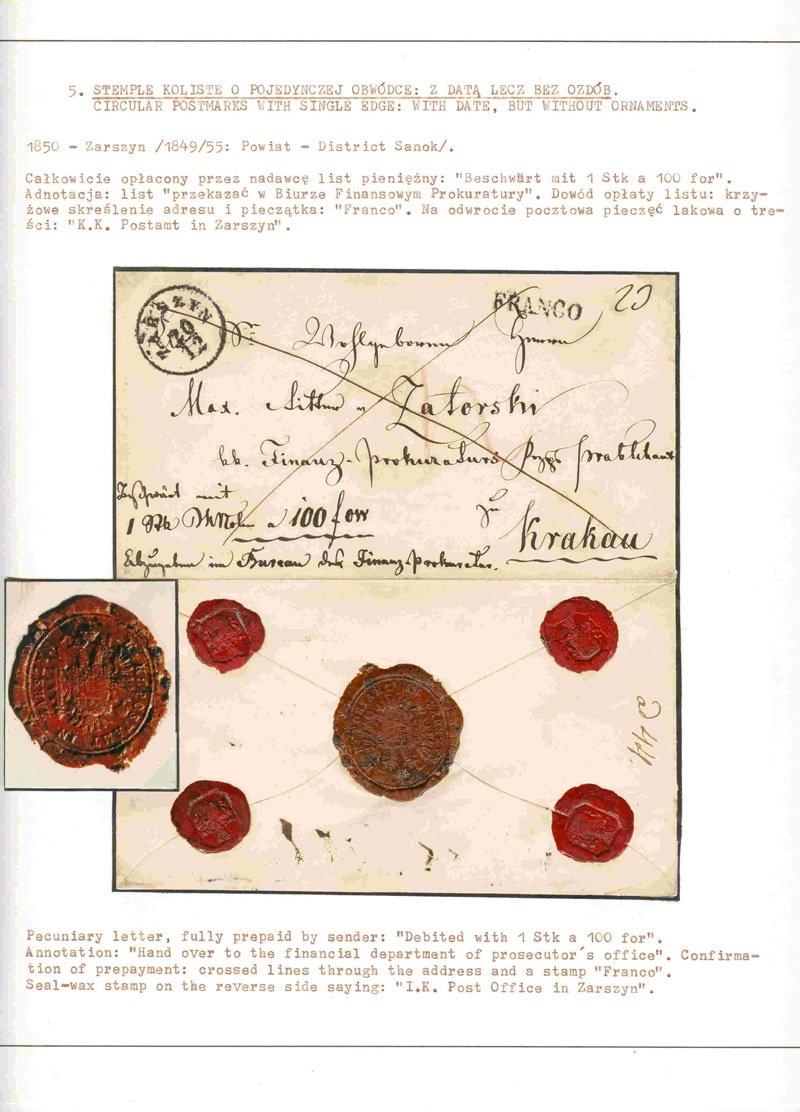 5. STEMPLE KOLISTE O POJEDYNCZEJ OBWÓDCE: Z DATĄ LECZ BEZ OZDÓB.
CIRCULAR POSTMARKS WITH SINGLE EDGE: WITH DATE, BUT WITHOUT ORNAMENTS.
1850 - Zarszyn /1849/55: Powiat - District Sanok/.
Całkowicie opłacony przez nadawcę list pieniężny: "Beschwärt mit 1 Stk a 100 for".
Adnotacja: list "przekazać w Biurze Finansowym Prokuratury". Dowód opłaty listu: krzy-
żowe skreślenie adresu i pieczątka: "Franco". Na odwrocie pocztowa pieczęć lakowa o tre-
ści: "K.K. Postamt in Zarszyn".
ZARSZYN
20
12
FRANCO
Wohlgeborn Herrn
Max. Ritter v Zatorski
kk. Finanz-Prokuraturs Praktikant
Beschwärt mit
1 Stk a 100 for
zu
Krakau
im Bureau der Finanz-Prokuratur.
Pecuniary letter, fully prepaid by sender: "Debited with 1 Stk a 100 for".
Annotation: "Hand over to the financial department of prosecutor´s office". Confirma-
tion of prepayment: crossed lines through the address and a stamp "Franco".
Seal-wax stamp on the reverse side saying: "I.K. Post Office in Zarszyn".